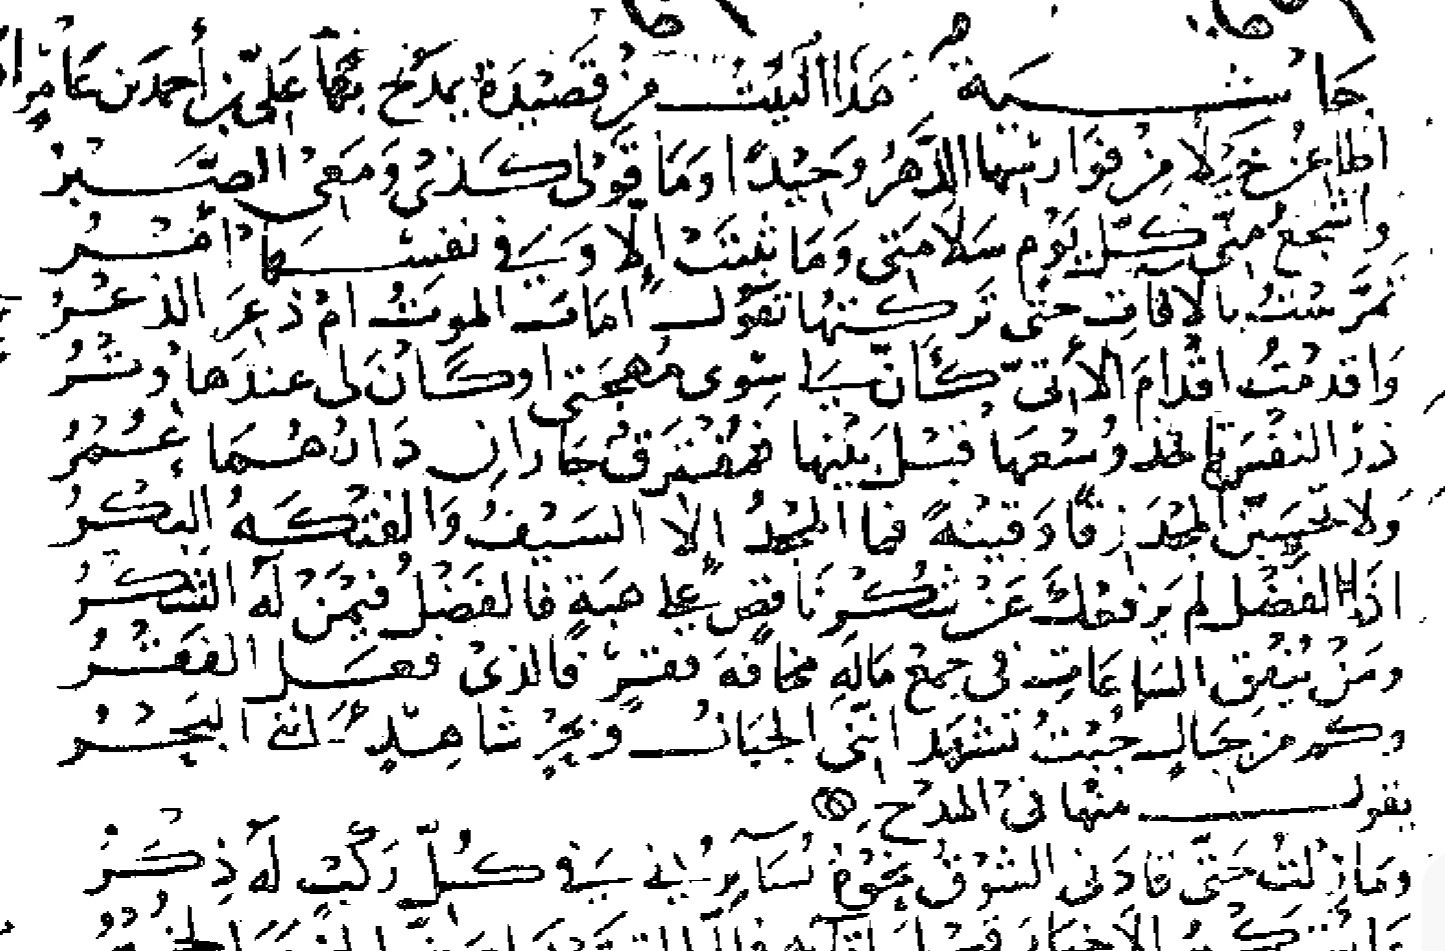 حاشية هذا البيت من قصيدة يمدح بها علي بن أحمد بن عامر
اطاعن خيلا من فوارسها الدهر وحيدا وما قولي كذى ومعي الصبر
واشجع مني كل يوم سلامتي وما ثبتت الا وفي نفسها امر
تمرست بالافات حتى تركتها تقول امات الموت ام ذعر الذعر
واقدمت اقدام الأتي كأن لي سوى مهجتي او كان لي عندها وتر
ذر النفس تاخذ وسعها قبل بينها فمفترق جاران دارهما عمر
ولا تحسبن المجد زقا وقينة فما المجد الا السيف والفتكه البكر
اذا الفضل لم يرفعك عن شكر ناقص على هبة فالفضل فيمن له الشكر
ومن ينفق الساعات في جمع ماله مخافة فقر فالذى فعل الفقر
وكم من جبال جبت تشهد انني الجبال وبحر شاهد انني البحر
يقول منها في المدح
وما زلت حتى قادني الشوق نحوه يسايرني في كل ركب له ذكر